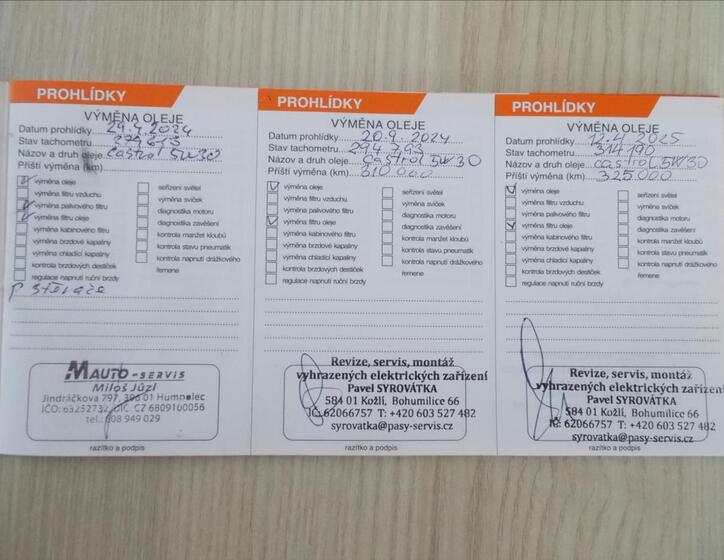 PROHLÍDKY
VÝMĚNA OLEJE
Datum prohlídky 29.4.2024
Stav tachometru 279.613
Názov a druh oleje Castrol 5W30
Příští výměna (km)
výměna oleje
výměna filtru vzduchu
výměna palivového filtru
výměna filtru oleje
výměna kabinového filtru
výměna brzdové kapaliny
výměna chladící kapaliny
kontrola brzdových destiček
regulace napnutí ruční brzdy
seřízení světel
výměna svíček
diagnostika motoru
diagnostika zavěšení
kontrola manžet kloubů
kontrola stavu pneumatik
kontrola napnutí drážkového
řemene
P stěrače
MAUTO-SERVIS
Miloš Jůzl
Jindráčkova 797, 396 01 Humpolec
IČO: 63252732, DIČ: CZ 6809100056
tel.: 608 949 029
razítko a podpis
PROHLÍDKY
VÝMĚNA OLEJE
Datum prohlídky 20.9.2024
Stav tachometru 294.793
Názov a druh oleje Castrol 5W30
Příští výměna (km) 310.000
výměna oleje
výměna filtru vzduchu
výměna palivového filtru
výměna filtru oleje
výměna kabinového filtru
výměna brzdové kapaliny
výměna chladící kapaliny
kontrola brzdových destiček
regulace napnutí ruční brzdy
seřízení světel
výměna svíček
diagnostika motoru
diagnostika zavěšení
kontrola manžet kloubů
kontrola stavu pneumatik
kontrola napnutí drážkového
řemene
Revize, servis, montáž
vyhrazených elektrických zařízení
Pavel SYROVÁTKA
584 01 Kožlí, Bohumilice 66
IČ: 62066757 T: +420 603 527 482
syrovatka@pasy-servis.cz
razítko a podpis
PROHLÍDKY
VÝMĚNA OLEJE
Datum prohlídky 12.4.2025
Stav tachometru 314190
Názov a druh oleje Castrol 5W30
Příští výměna (km) 325.000
výměna oleje
výměna filtru vzduchu
výměna palivového filtru
výměna filtru oleje
výměna kabinového filtru
výměna brzdové kapaliny
výměna chladící kapaliny
kontrola brzdových destiček
regulace napnutí ruční brzdy
seřízení světel
výměna svíček
diagnostika motoru
diagnostika zavěšení
kontrola manžet kloubů
kontrola stavu pneumatik
kontrola napnutí drážkového
řemene
Revize, servis, montáž
vyhrazených elektrických zařízení
Pavel SYROVÁTKA
584 01 Kožlí, Bohumilice 66
IČ: 62066757 T: +420 603 527 482
syrovatka@pasy-servis.cz
razítko a podpis